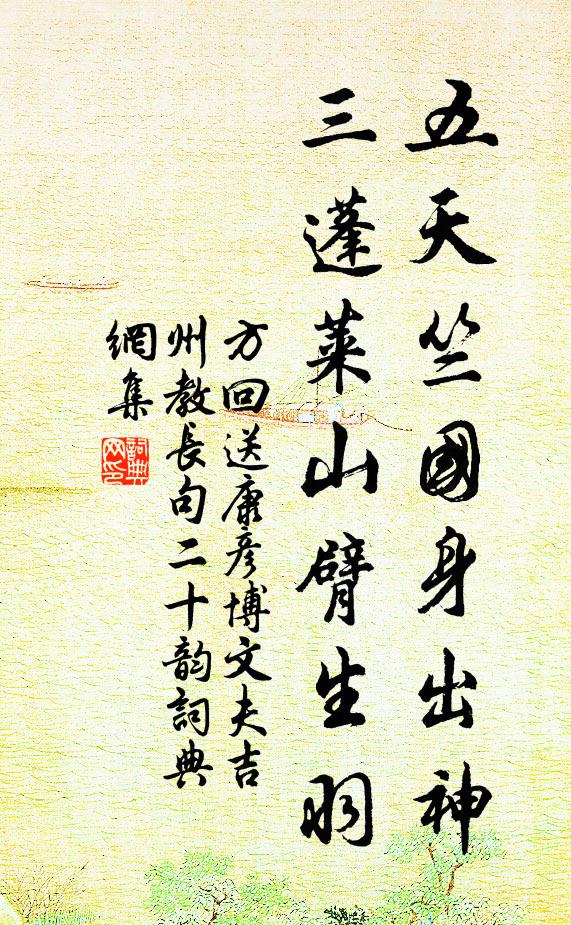 五天竺國身出神
三蓬萊山臂生羽
方回送康彥博文夫吉
州教長句二十韵詞典
網集
詞典
网印